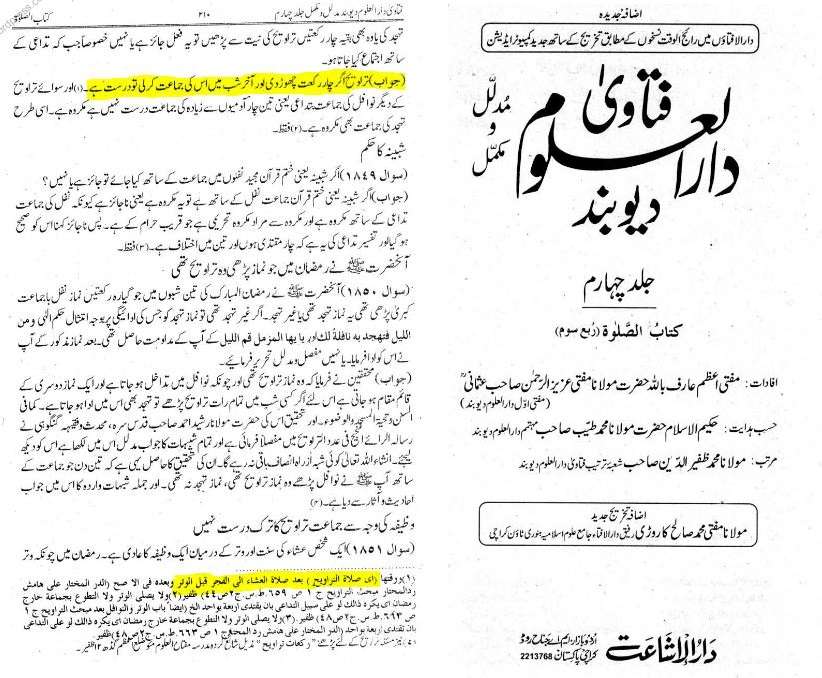 فتاویٰ دارالعلوم دیوبند مدلل و مکمل جلد چہارم ۲۱۰ کتاب الصلوٰۃ
تہجد کی یا وہ بھی بقیہ چار رکعتیں تراویح کی نیت سے پڑھیں تو یہ فعل جائز ہے یا نہیں خصوصاً جب کہ تداعی کے
ساتھ اجتماع کیا جاتا ہو۔
(جواب) تراویح اگر چار رکعت چھوڑ دی اور آخر شب میں اس کی جماعت کر لی تو درست ہے۔(۱) اور سوائے تراویح
کے دیگر نوافل کی جماعت بتداعی یعنی تین چار آدمیوں سے زیادہ کی جماعت درست نہیں ہے مکروہ ہے۔ اسی طرح
تہجد کی جماعت بھی مکروہ ہے۔(۲) فقط۔
شبینہ کا حکم
(سوال ۱۸۴۹) اگر شبینہ یعنی ختم قرآن مجید نفلوں میں جماعت کے ساتھ کیا جائے تو جائز ہے یا نہیں؟
(جواب) اگر شبینہ یعنی ختم قرآن جماعت نفل کے ساتھ ہے تو یہ مکروہ ہے یعنی ناجائز ہے کیونکہ نفل کی جماعت
تداعی کے ساتھ مکروہ ہے اور مکروہ سے مراد مکروہ تحریمی ہے جو قریب حرام کے ہے۔ پس ناجائز کہنا اس کو صحیح
ہو گیا اور تفسیر تداعی کی یہ ہے کہ چار مقتدی ہوں اور تین میں اختلاف ہے۔(۳) فقط۔
آنحضرت ﷺ نے رمضان میں جو نماز پڑھی وہ تراویح تھی
(سوال ۱۸۵۰) آنحضرت ﷺ نے رمضان المبارک کی تین شبوں میں جو گیارہ رکعتیں نماز نفل با جماعت
کبریٰ پڑھی تھی یہ نماز تہجد تھی یا غیر تہجد۔ اگر غیر تہجد تھی تو نماز تہجد کو جس کی ادائیگی پر بوجہ امتثال حکم الٰہی و من
الليل فتهجد به نافلة لك اور يا يها المزمل قم الليل کے آپ کے مداومت حاصل تھی۔ بعد نماز مذکور کے آپ
نے اس کو ادا فرمایا۔ یا نہیں مفصل و مدلل تحریر فرمائیے۔
(جواب) محققین نے فرمایا کہ وہ نماز تراویح تھی اور چونکہ نوافل میں تداخل ہو جاتا ہے اور ایک نماز دوسری کے
قائم مقام ہو جاتی ہے اس لئے اگر کسی شب میں تمام رات تراویح پڑھے تو تہجد بھی اس میں ادا ہو جاتا ہے۔ کما فی
السنن و تحیۃ المسجد والوضوء۔ اور تحقیق اس کی حضرت مولانا رشید احمد صاحب قدس سرہ، محدث و فقیہہ گنگوہی نے
رسالہ الرائے النجیح فی عدد التراویح میں مفصلاً فرمائی ہے اور تمام شبہات کا جواب مدلل اس میں لکھا ہے اس کو دیکھ
لیجئے۔ انشاء اللہ تعالیٰ کوئی شبہ از راہ انصاف باقی نہ رہے گا۔ ان کی تحقیق کا حاصل یہی ہے کہ تین دن جو جماعت کے
ساتھ آپ ﷺ نے نوافل پڑھے وہ تراویح تھی، نماز تہجد نہ تھی۔ اور جملہ شبہات واردہ کا اس میں جواب
احادیث و آثار سے دیا ہے۔(۴)
وظیفہ کی وجہ سے جماعت تراویح کا ترک درست نہیں
(سوال ۱۸۵۱) ایک شخص عشاء کی سنت اور وتر کے درمیان ایک وظیفہ کا عادی ہے۔ رمضان میں چونکہ وتر
(۱) ووقتها (اى صلاة التراويح) بعد صلاة العشاء الى الفجر قبل الوتر وبعده فى الا صح (الدر المختار على هامش
رد المحتار مبحث التراويح ج ۱ ص ۶۵۹.ط.س.ج۲ص۴۴) ظفير (۲) ولا يصلى الوتر ولا التطوع بجماعة خارج
رمضان اى يكره ذالك لو على سبيل التداعى بان يقتدى اربعة بواحد الخ (ايضاً باب الوتر والنوافل بعد مبحث التراويح ج ۱
ص ۶۶۳.ط.س.ج۲ص۴۸) ظفير. (۳) ولا يصلى الوتر ولا التطوع بجماعة خارج رمضان اى يكره ذالك لو على التداعى
بان يقتدى اربعة بواحد (الدر المختار على هامش رد المحتار ج ۱ ص ۶۶۳.ط.س.ج۲ص۴۸) ظفير.
اضافہ جدیدہ
دارالافتاؤں میں رائج الوقت نسخوں کے مطابق تخریج کے ساتھ جدید کمپیوٹر ایڈیشن
فتاویٰ
دارالعلوم
دیوبند
مدلل
و
مکمل
جلد چہارم
کتاب الصلوٰۃ (ربع سوم)
افادات: مفتی اعظم عارف باللہ حضرت مولانا مفتی عزیز الرحمٰن صاحب عثمانیؒ
(مفتی اول دارالعلوم دیوبند)
حسب ہدایت: حکیم الاسلام حضرت مولانا محمد طیب صاحب مہتمم دارالعلوم دیوبند
مرتب: مولانا محمد ظفیر الدین صاحب شعبۂ ترتیب فتاویٰ دارالعلوم دیوبند
اضافہ تخریج جدید
مولانا مفتی محمد صالح کاروڑی رفیق دارالافتاء جامع علوم اسلامیہ بنوری ٹاؤن کراچی
دارالاشاعت
اردو بازار ایم اے جناح روڈ
کراچی پاکستان 2213768